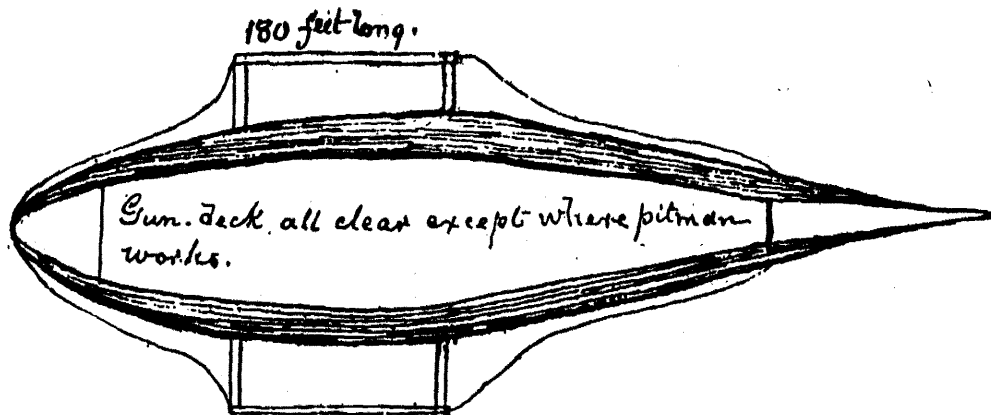 180 feet long.
Gun-deck, all clear except where pitman
works.